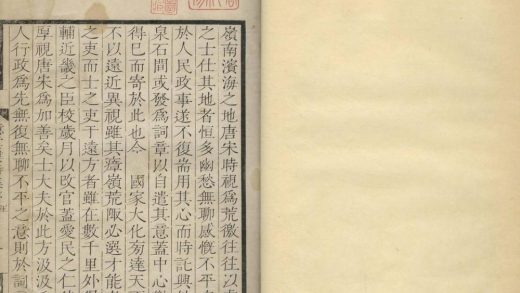 嶺南濱海之地唐宋時視爲荒徼徃徃以
之士仕其地者恒多幽愁無聊感慨不平
於人民政事遂不復耑用其心而時託興
泉石間或發爲詞章以自遣其意蓋中心
得巳而寄於此也今 國家大化匌達天
不以遠近異視雖其瘴嶺荒陬必選才能
之吏而士之吏干遠方者雖在數千里外
輔近畿之臣校歲月以改官蓋愛民之仁
厚視唐宋爲加善矣士大夫於此方汲汲
人行政爲先無復無聊不平之意則於詞